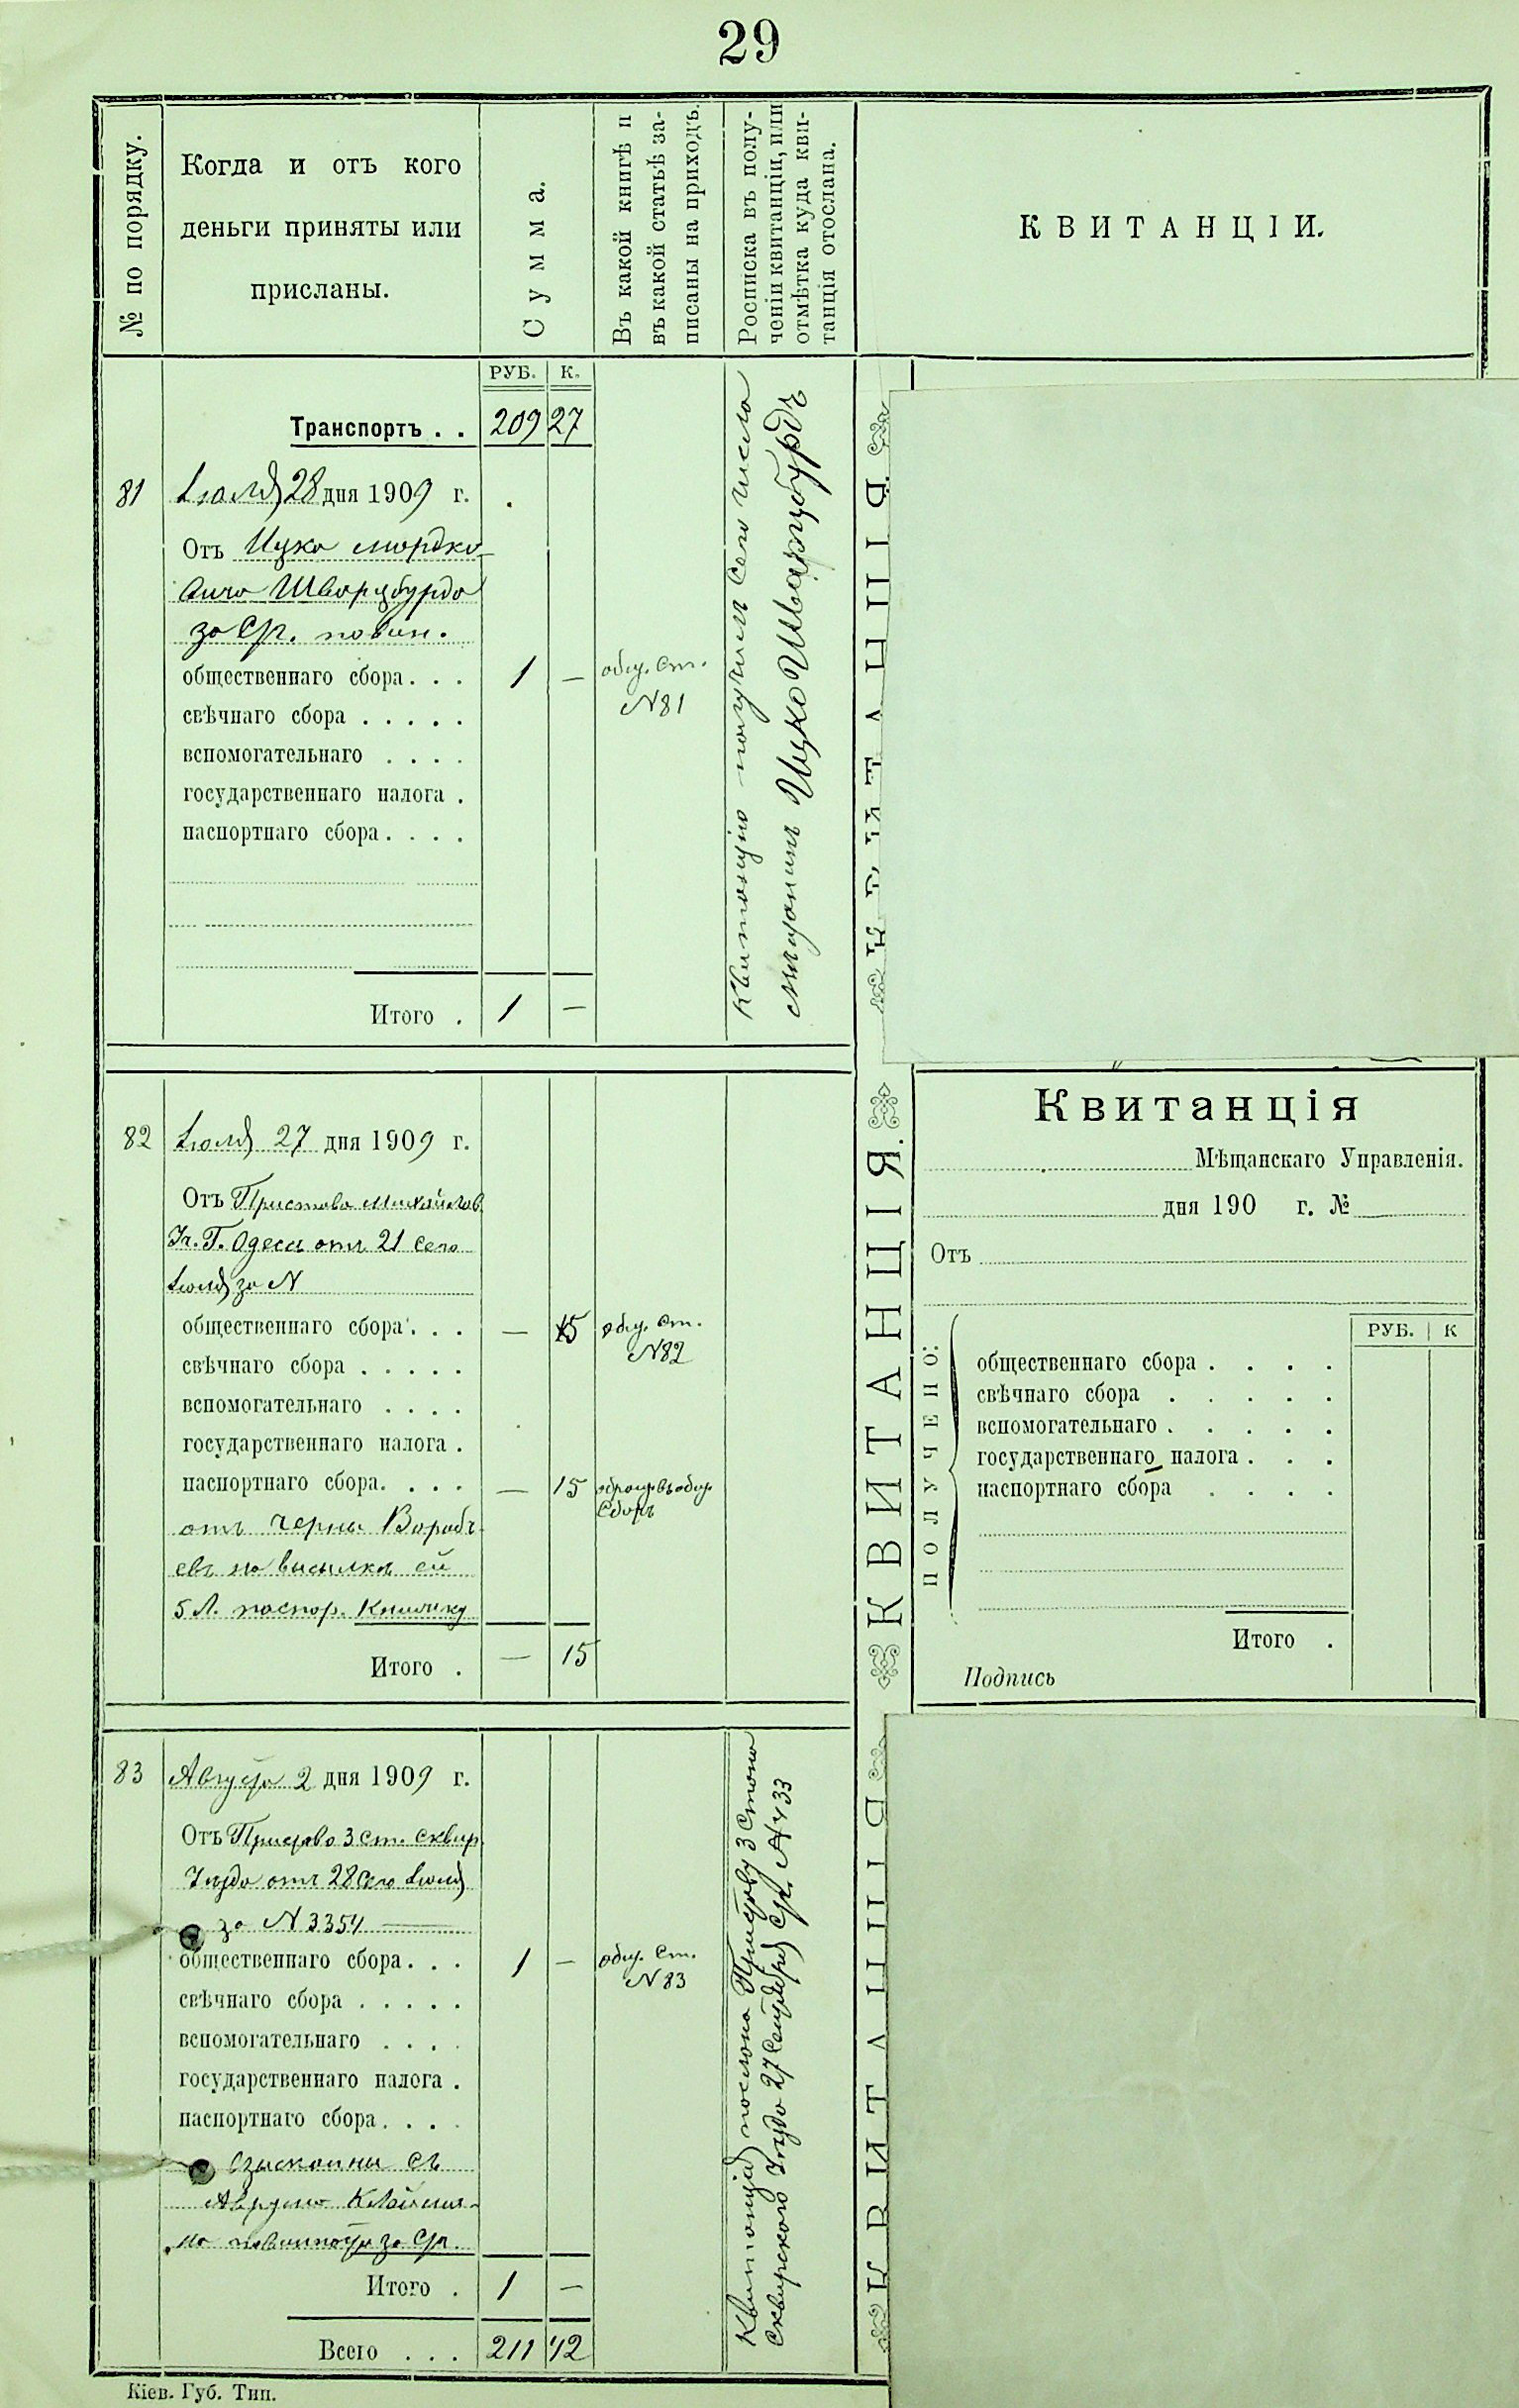 29
№ по порядку.
Когда и отъ кого
деньги приняты или
присланы.
Сумма.
Въ какой книгѣ и
въ какой статьѣ за-
писаны на приходъ.
Росписка въ полу-
ченіи квитанціи, или
отмѣтка куда кви-
танція отослана.
КВИТАНЦІИ.
РУБ. К.
Транспортъ . . 209 27
81 Іюля 28 дня 1909 г.
Отъ Ицка Мордко-
вича Шварцбурда
за Ср. повин.
общественнаго сбора . . . 1 — общ. ст.
N 81
свѣчнаго сбора . . . . .
вспомогательнаго . . . .
государственнаго налога .
паспортнаго сбора . . . .
Итого . 1 —
Квитанцію получилъ сего числа
мѣщанинъ Ицко Шварцбурдъ
КВИТАНЦІЯ.
82 Іюля 27 дня 1909 г.
Отъ Пристава Михайлов.
Уч. Г. Одессы отъ 21 сего
Іюля за N
общественнаго сбора . . . — 15 общ. ст.
N 82
свѣчнаго сбора . . . . .
вспомогательнаго . . . .
государственнаго налога .
паспортнаго сбора . . . . — 15
сборъ
отъ Черны Вороб
на высылку ей
5 Л. паспор. книжку
Итого . — 15
КВИТАНЦІЯ.
Квитанція
Мѣщанскаго Управленія.
дня 190 г. №
Отъ
ПОЛУЧЕНО:
РУБ. К
общественнаго сбора . . . .
свѣчнаго сбора . . . . .
вспомогательнаго . . . . .
государственнаго налога . . .
паспортнаго сбора . . . .
Итого .
Подпись
83 Августа 2 дня 1909 г.
Отъ Пристава 3 ст. Сквир.
Уѣзда отъ 28 сего Іюля
за N 3354
общественнаго сбора . . . 1 — общ. ст.
N 83
свѣчнаго сбора . . . . .
вспомогательнаго . . . .
государственнаго налога .
паспортнаго сбора . . . .
взысканны съ
Аврума Клейма-
на повинность за Ср.
Итого . 1 —
Всего . . . 211 42
Квитанція послана Приставу 3 стана
Сквирского Уѣзда 27 Сентября Ср. N 433
КВИТАНЦІЯ
Кіев. Губ. Тип.